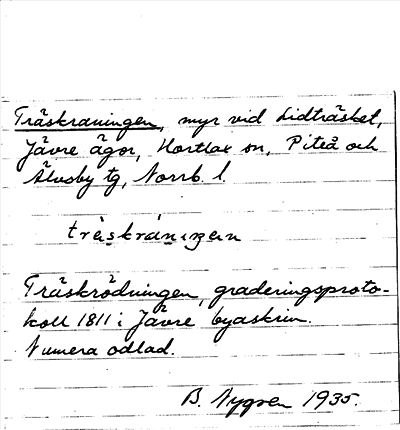 Träskraningen, myr vid Lidträsket,
Jävre ägor, Hortlax sn, Piteå och
Älvsby tg, Norrb. l.
träskrániŋen
Träskrödningen, graderingsproto-
koll 1811 i Jävre byaskrin.
Numera odlad.
B. Nygren 1935.